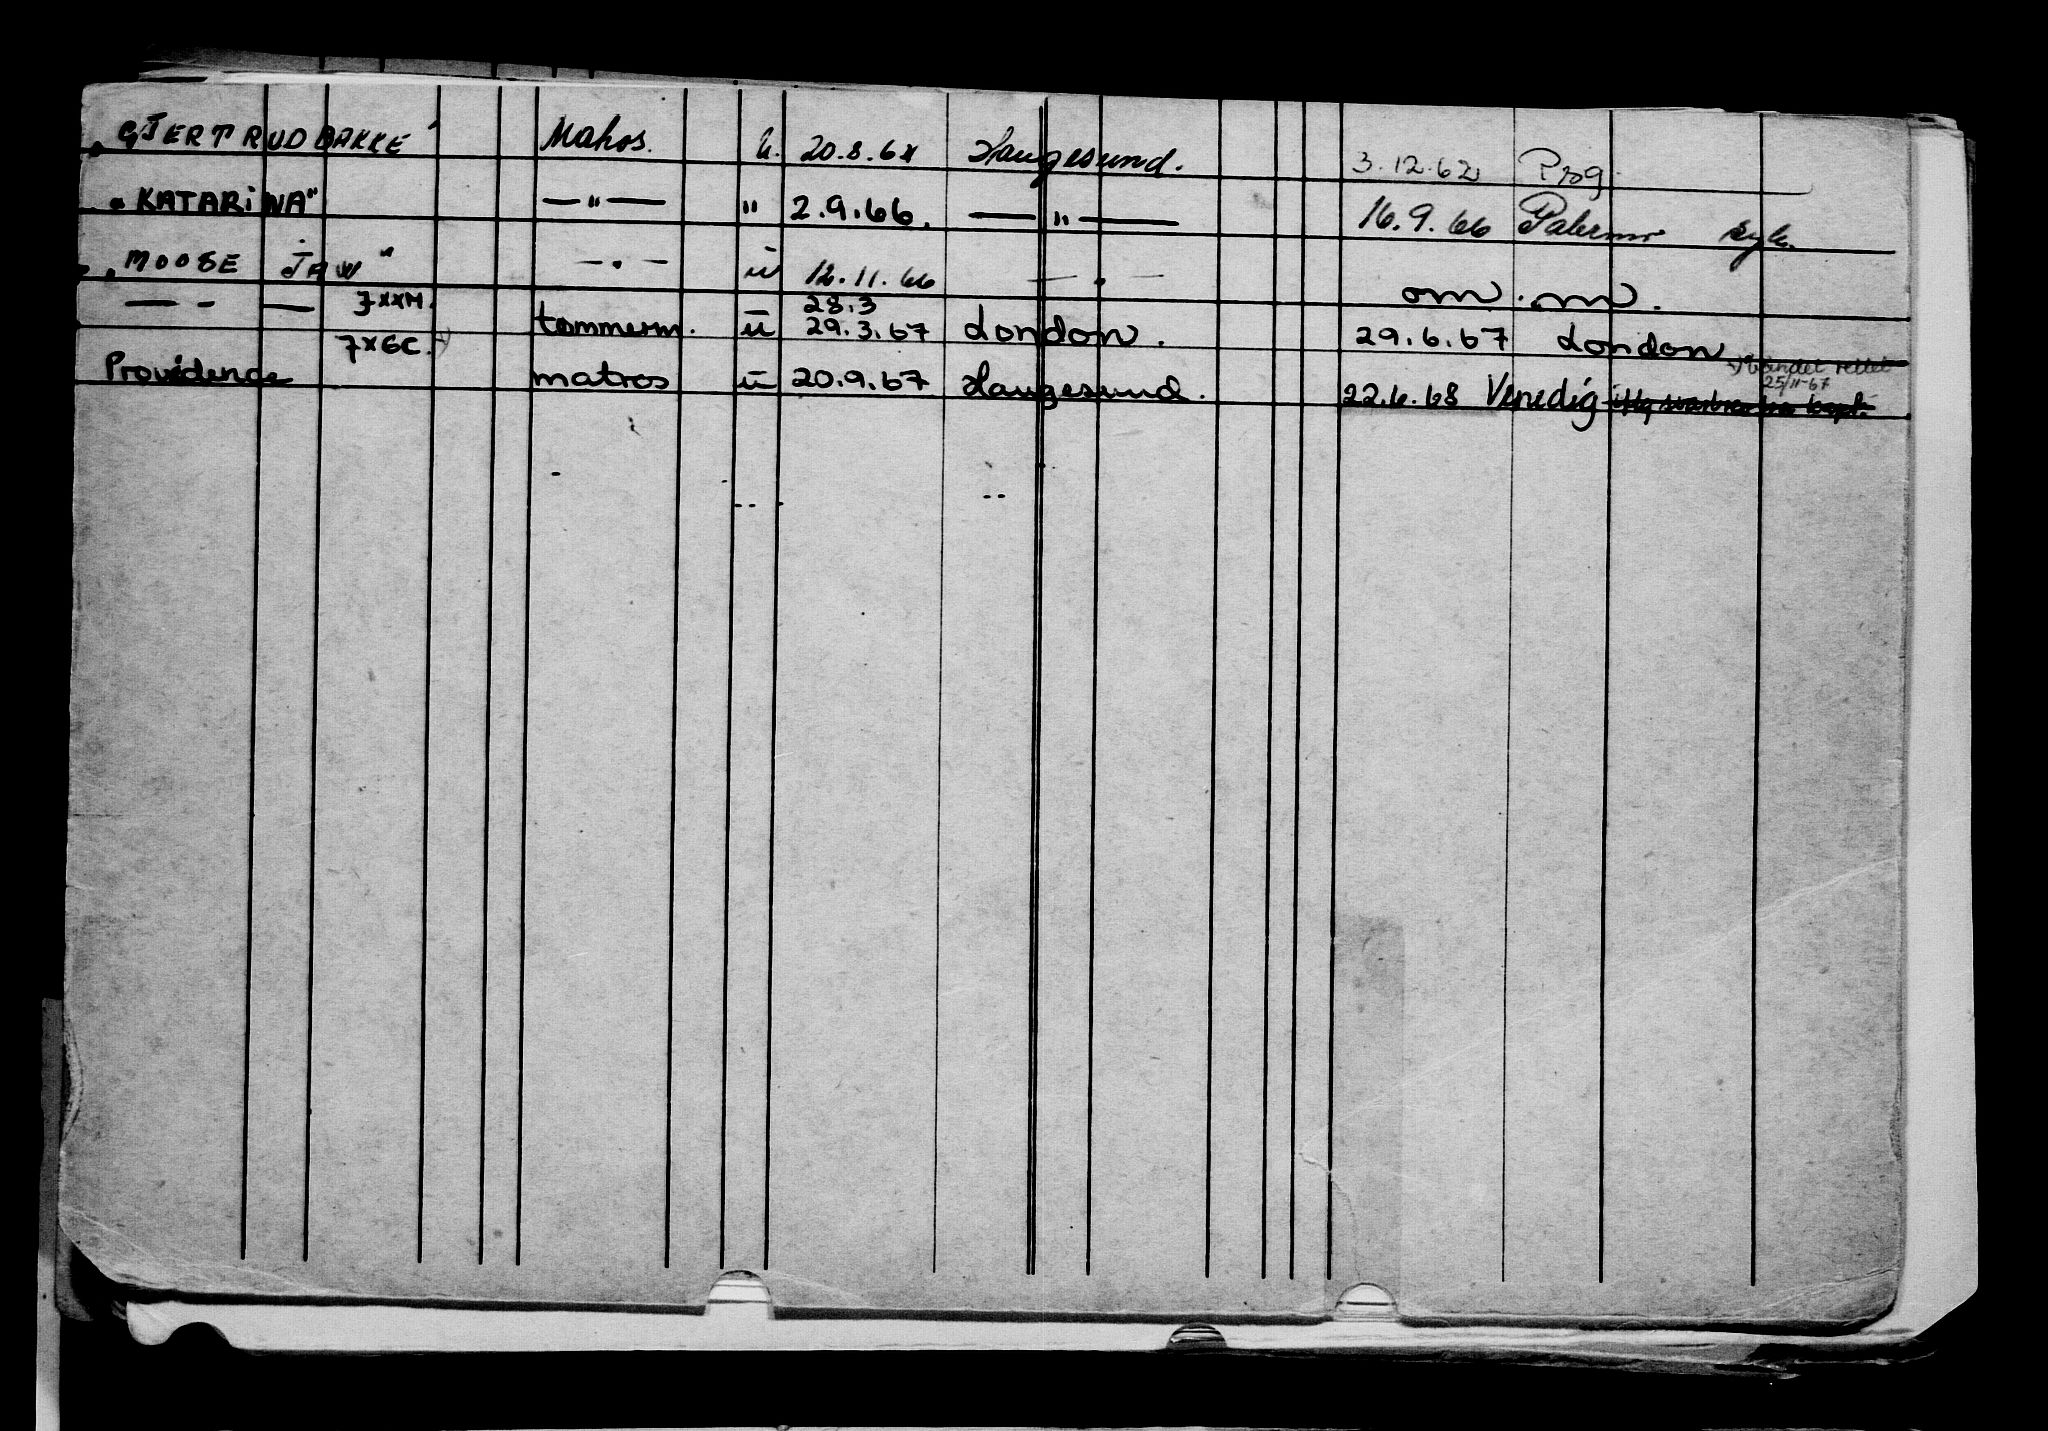 "GJERTRUD BAKKE" Matros. u. 20.8.61 Haugesund. 3.12.62
"KATARINA" — " — " 2.9.66. — " — 16.9.66 Palermo syk.
"MOOSE JAW" — " — u 12.11.66 — " — om. m.
— " — 7xxM. 28.3
tømmerm. u 29.3.67 London. 29.6.67 London
7xGC.
Providence matros u 20.9.67 Haugesund. 22.6.68 Venedig
25/11-67